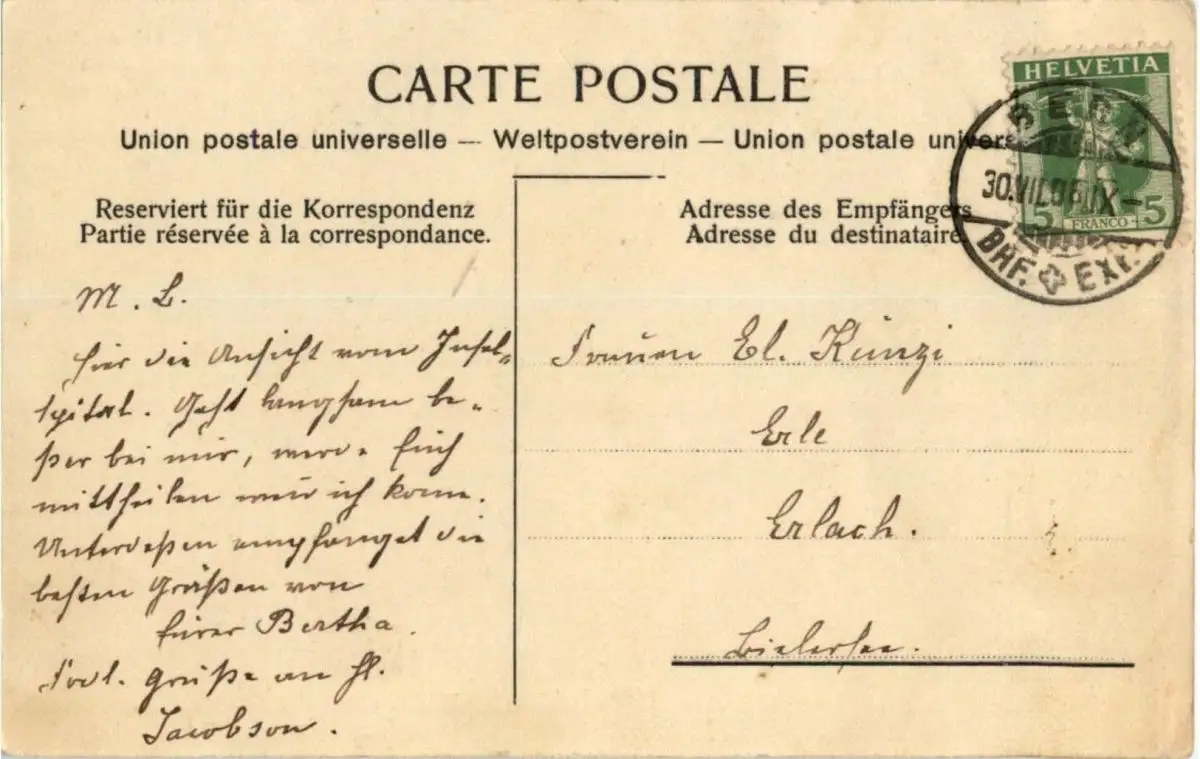 CARTE POSTALE
Union postale universelle — Weltpostverein — Union postale univers
Reserviert für die Korrespondenz
Partie réservée à la correspondance.
Adresse des Empfängers
Adresse du destinataire.
HELVETIA
5 FRANCO 5
BERN
30.VII.09.IX–
BHF. EXP.
M. L.
hier die Ansicht vom Insel-
spital. Geht langsam be-
ßer bei mir, werde Euch
mittheilen wen ich kome.
Unterdeßen empfanget die
besten Grüßen von
Eurer Bertha.
Grüße an
Jacobson.
El. Künzi
Erle
Erlach.
Bielersee.